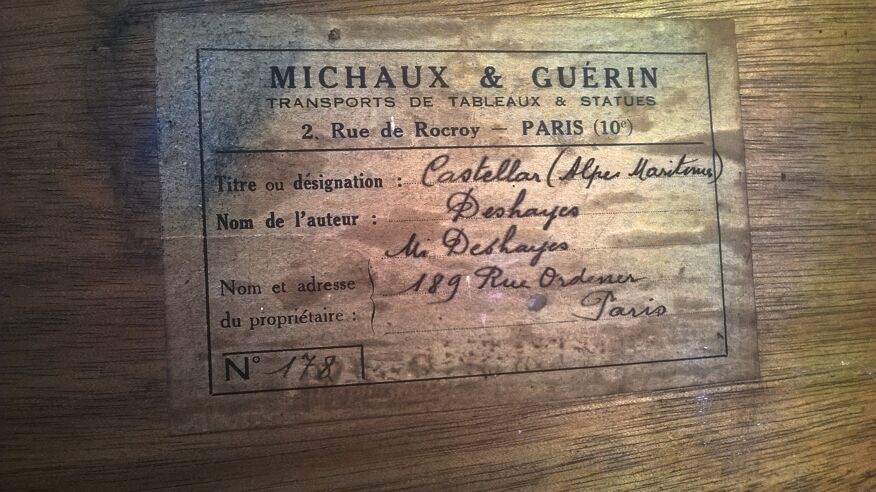 MICHAUX & GUÉRIN
TRANSPORTS DE TABLEAUX & STATUES
2, Rue de Rocroy — PARIS (10e)
Titre ou désignation : Castellar (Alpes Maritimes)
Nom de l'auteur : Deshayes
Mr Deshayes
Nom et adresse 189 Rue Ordener
du propriétaire : Paris
N° 178